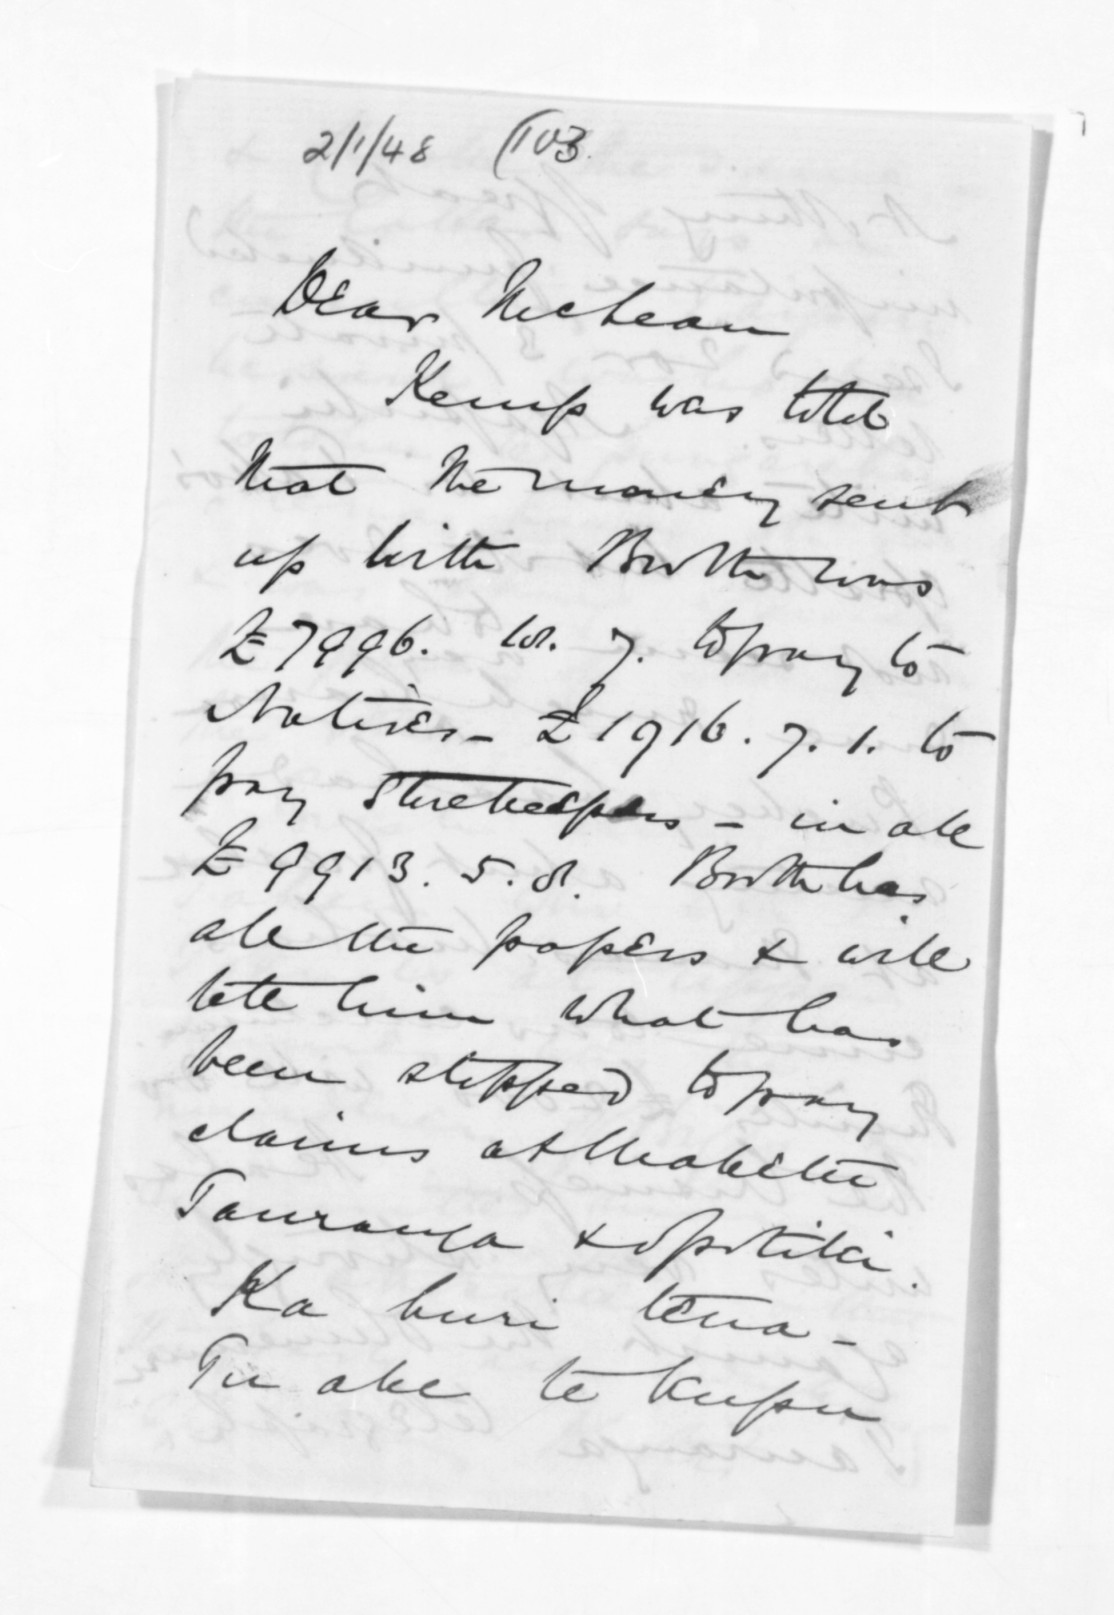 2/1/48 (103
Dear McLean
Kemp was told
that the money sent
up with Booth was
£7996. 18. 7. to pay to
Natives - £1916. 7. 1. to
pay Storekeepers - in all
£9913. 5. 8. Booth has
all the papers & will
tell him what has
been stopped to pay
claims at Maketu
Tauranga & Opotiki.
Ka huri tena -
Tu ake te kupu